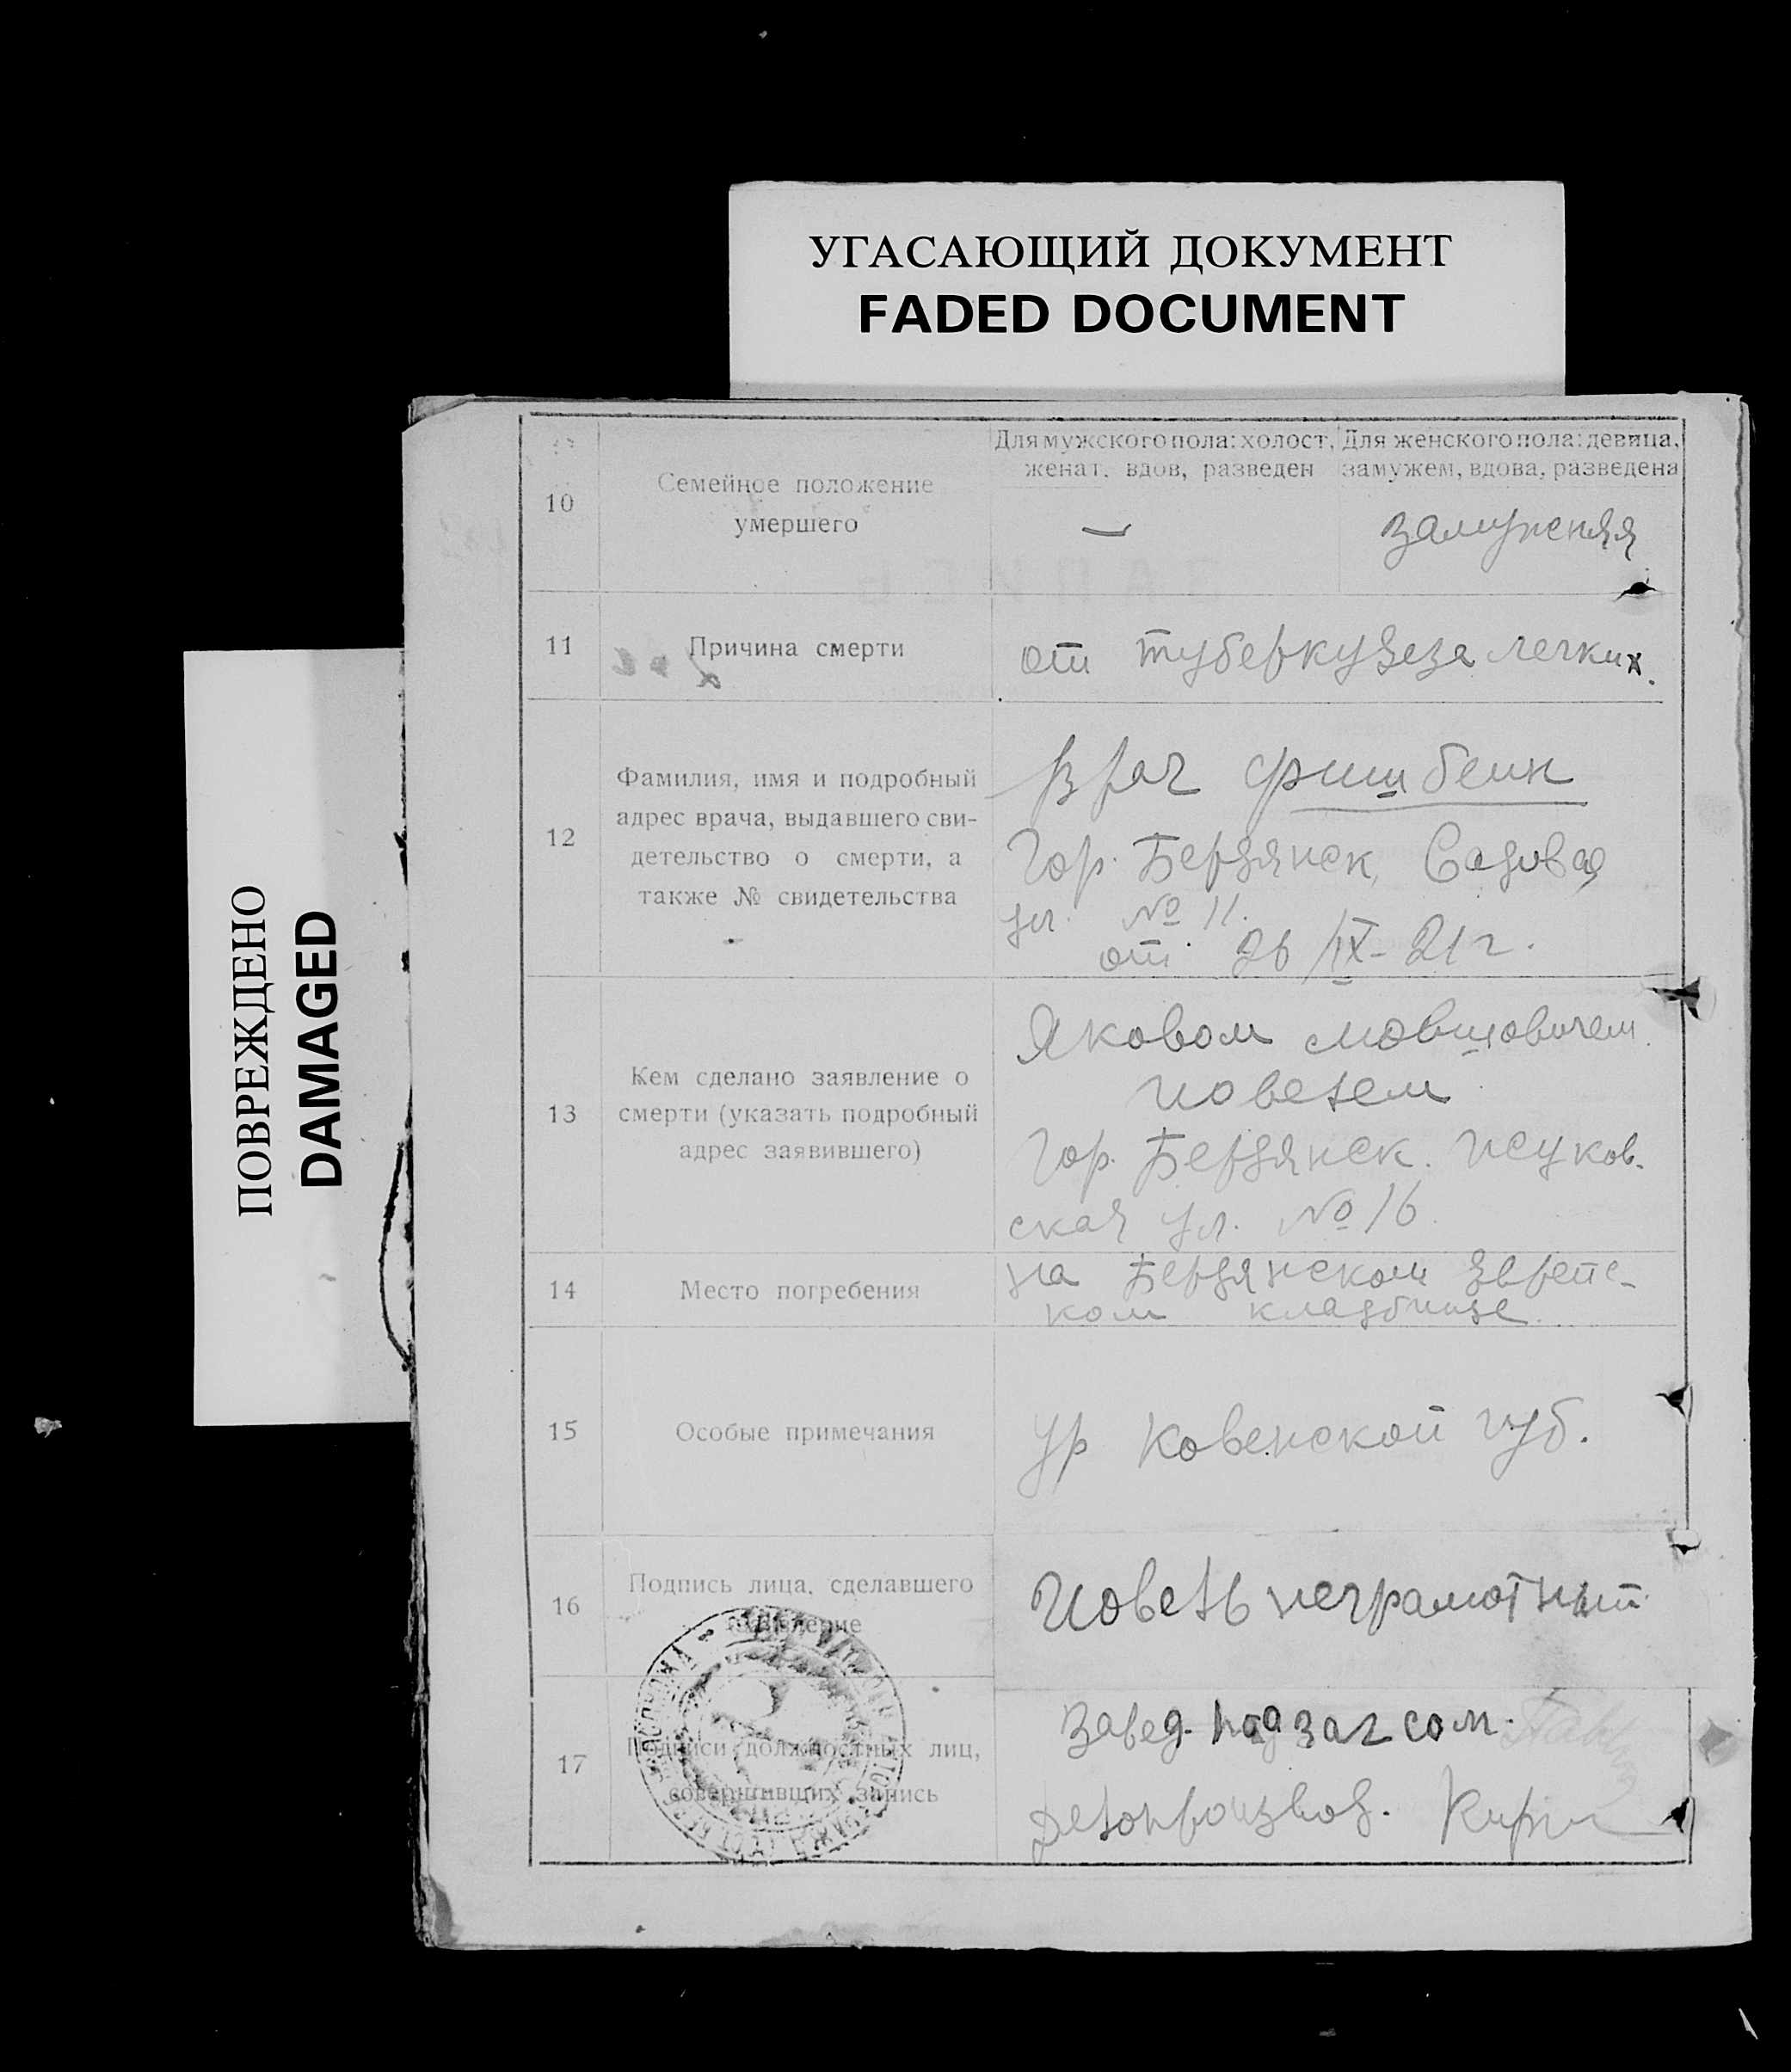 УГАСАЮЩИЙ ДОКУМЕНТ
FADED DOCUMENT
ПОВРЕЖДЕНО
DAMAGED
10
Семейное положение
умершего
Для мужского пола: холост,
женат, вдов, разведен
Для женского пола: девица,
замужем, вдова, разведена
—
замужняя
11
Причина смерти
от туберкулеза легких.
12
Фамилия, имя и подробный
адрес врача, выдавшего сви-
детельство о смерти, а
также № свидетельства
врач Фишбейн
Гор. Бердянск, Садовая
ул. № 11.
от 26/IX-21 г.
13
Кем сделано заявление о
смерти (указать подробный
адрес заявившего)
Яковом Мовшовичем
Иовелем
Гор. Бердянск.
ская ул. № 16.
14
Место погребения
на Бердянском Еврейс-
ком кладбище
15
Особые примечания
ур Ковенской губ.
16
Подпись лица, сделавшего
заявление
Иовель неграмотный
17
Подписи должностных лиц,
совершивших запись
Завед. подзагсом.
Делопроизвод.